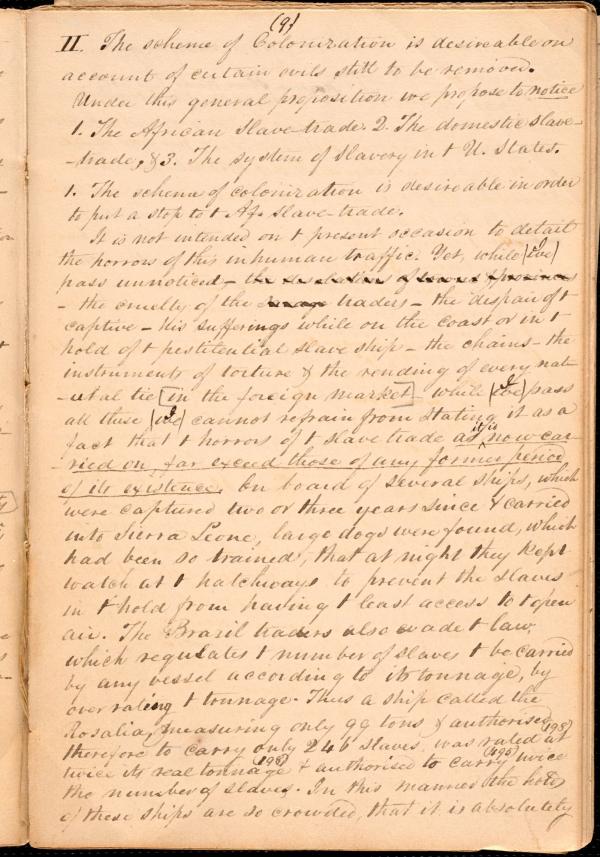 (9)
II. The scheme of Colonization is desireable on
account of certain evils still to be removed.
Under this general proposition we propose to notice
1. The African Slave trade. 2. The domestic slave-
-trade, & 3. The system of Slavery in t U. States.
1. The scheme of colonization is desireable in order
to put a stop to t Af. Slave-trade.
It is not intended on t present occasion to detail
the horrors of this inhuman traffic. Yet, while |we| I
pass unnoticed – the desolations of towns & provinces
– the cruelty of the traders – the despair of t
captive – His sufferings while on the coast or in t
hold of t pestilential slave ship – the chains – the
instruments of torture & the rending of every nat-
-ural tie [in the foreign market] – while |we| I pass
all these |we| I cannot refrain from stating it as a
fact that t horrors of t slave trade as it is now car-
-ried on, far exceed those of any former period
of its existence. On board of several ships, which
were captured two or three years since & carried
into Sierra Leone, large dogs were found, which
had been so trained, that at night they kept
watch at t hatchways to prevent the slaves
in t hold from having t least access to t open
air. The Brazil traders also evade t law,
which regulates t number of slaves t be carried
by any vessel according to its tonnage, by
over rating t tonnage. Thus a ship called the
Rosalia, measuring only 99 tons & authorised
therefore to carry only 246 slaves, was rated at (198)
twice its real tonnage (198) & authorised to carry (495) twice
the number of slaves. In this manner the holds
of these ships are so crowded, that it is absolutely